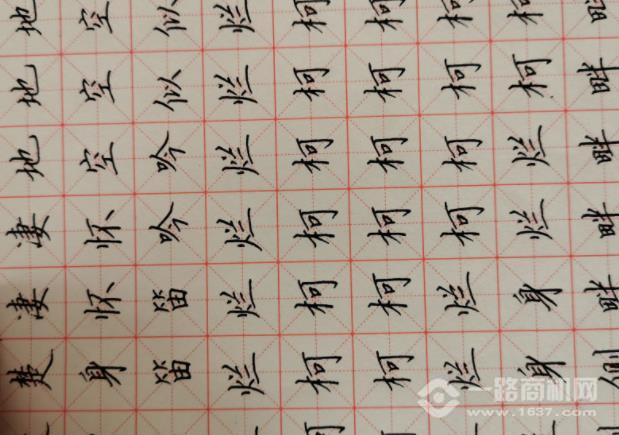 地空似烂柯柯柯柯
地空似烂柯柯柯柯畔
地空吟烂柯柯柯烂畔
凄怀吟烂柯柯柯烂畔
凄怀笛烂柯柯烂身畔
楚身笛烂柯柯烂身侧
一路商机网
www.1637.com